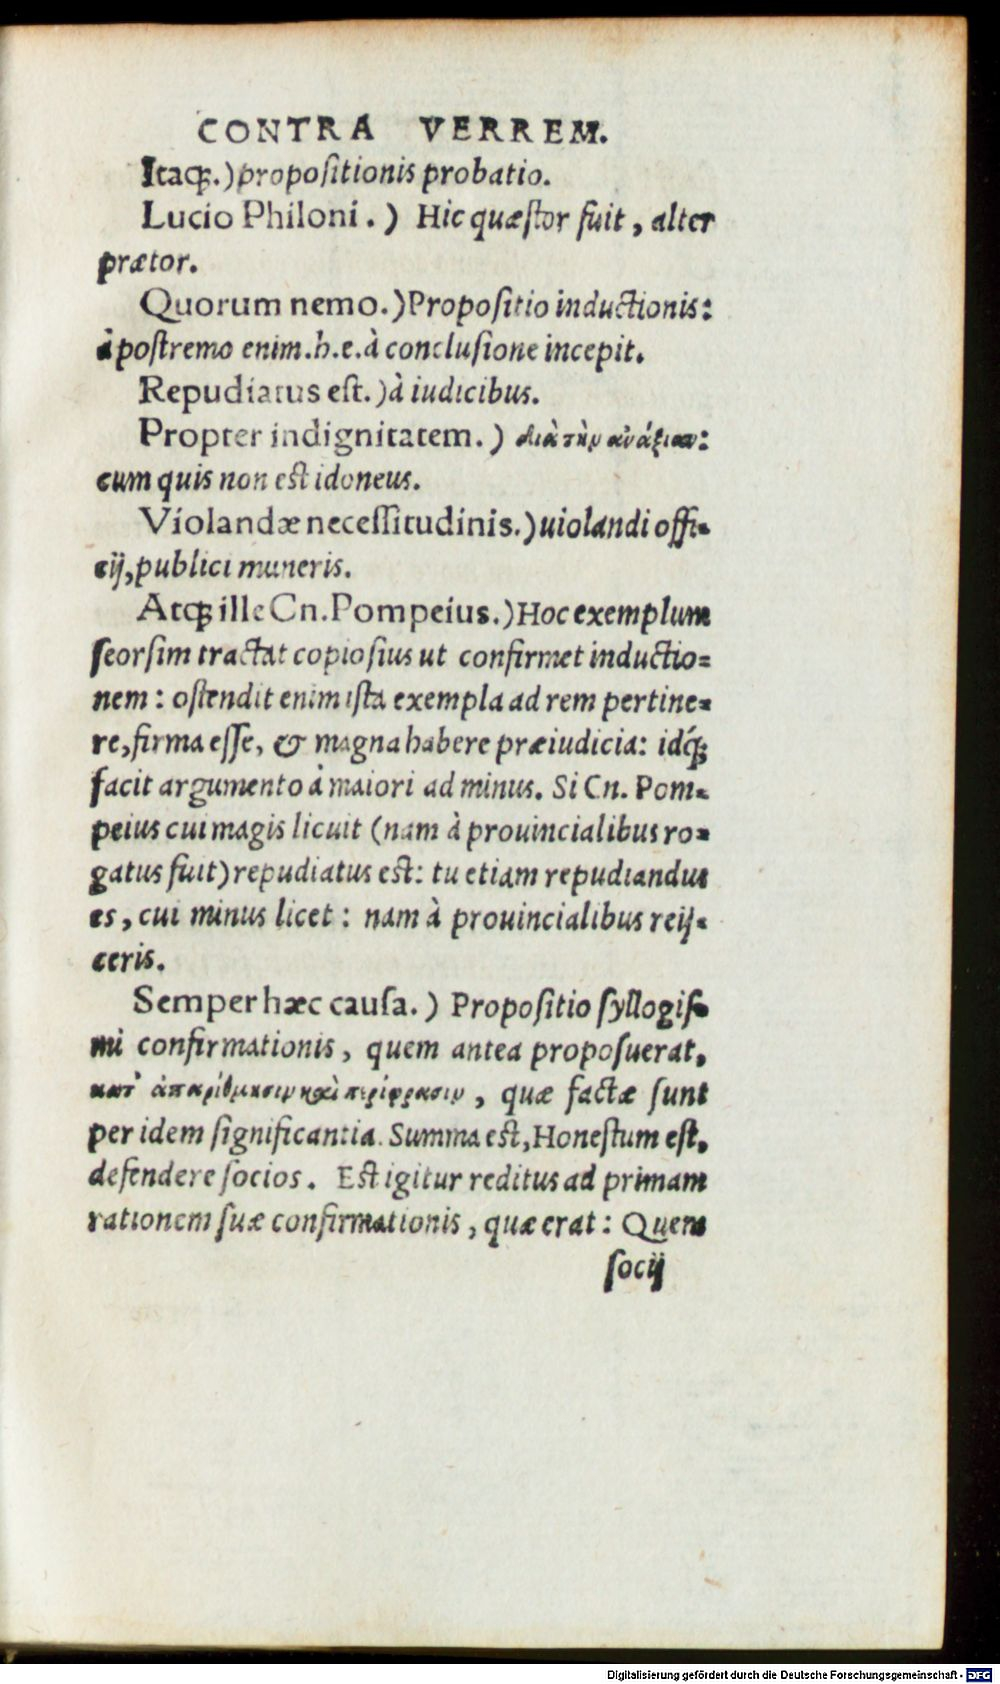 CONTRA VERREM.
Itaq;.) propoſitionis probatio.
Lucio Philoni.) Hic quæſtor fuit, alter
prætor.
Quorum nemo.) Propoſitio inductionis:
à poſtremo enim.h.e.à concluſione incepit.
Repudiatus eſt.) à iudicibus.
Propter indignitatem.) διὰ τὴν ἀνάξιαν:
cum quis non eſt idoneus.
Violandæ neceſſitudinis.) uiolandi offi-
cij, publici muneris.
Atq; ille Cn. Pompeius.) Hoc exemplum
ſeorſim tractat copioſius ut confirmet inductio=
nem: oſtendit enim iſta exempla ad rem pertine-
re, firma eſſe, & magna habere præiudicia: idq́;
facit argumento à maiori ad minus. Si Cn. Pom-
peius cui magis licuit (nam à prouincialibus ro-
gatus fuit) repudiatus eſt: tu etiam repudiandus
es, cui minus licet: nam à prouincialibus reij-
ceris.
Semper hæc cauſa.) Propoſitio ſyllogiſ-
mi confirmationis, quem antea propoſuerat,
κατ' ἀπαρίθμησιν καὶ περίφρασιν, quæ factæ ſunt
per idem ſignificantia. Summa eſt, Honeſtum eſt,
defendere ſocios. Eſt igitur reditus ad primam
rationem ſuæ confirmationis, quæ erat: Quem
ſocij
Digitalisierung gefördert durch die Deutsche Forschungsgemeinschaft - DFG